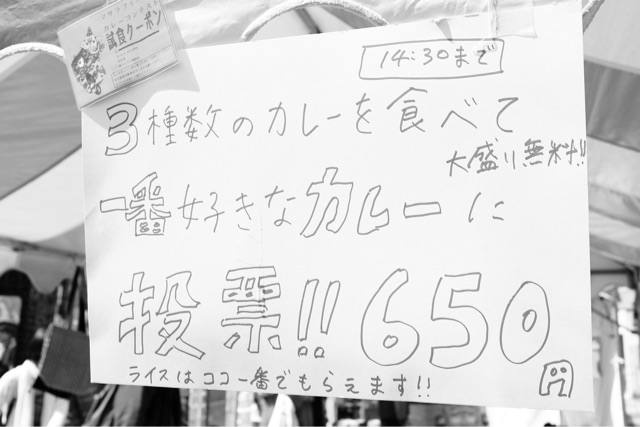 試食クーポン
14:30まで
3種数のカレーを食べて
大盛り無料!!
一番好きなカレーに
投票!! 650円
ライスはココ一番でもらえます!!